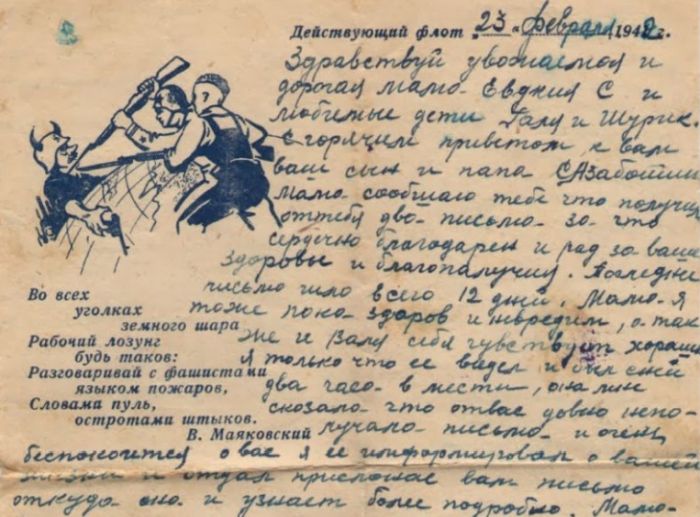 Действующий флот „23 „ февраля 1942 г.
Здравствуй уважаемая и
дорогая мамо Евдкия С и
любимые дети Галя и Шурик.
С горячим приветом к вам
ваш сын и папа
Мамо сообщаю тебе что получил
от тебя дво письмо за что
сердечно благодарен и рад за ваше
здоровы и благопалучия. Последне
письмо шло всего 12 дней. Мамо Я
тоже пока здоров и нвредим, а так
же и Валя себя чувствует хорошо
я только что ее видел и был с ней
два часо в мести, она мне
сказало что от вас довно непо-
лучало письмо и очень
беспокоится о вас я ее информировал о вашей
жизни и отдал присланое вам письмо
откудо оно и узнает более подробно. Мамо
Во всех
уголках
земного шара
Рабочий лозунг
будь таков:
Разговаривай с фашистами
языком пожаров,
Словами пуль,
остротами штыков.
В. Маяковский